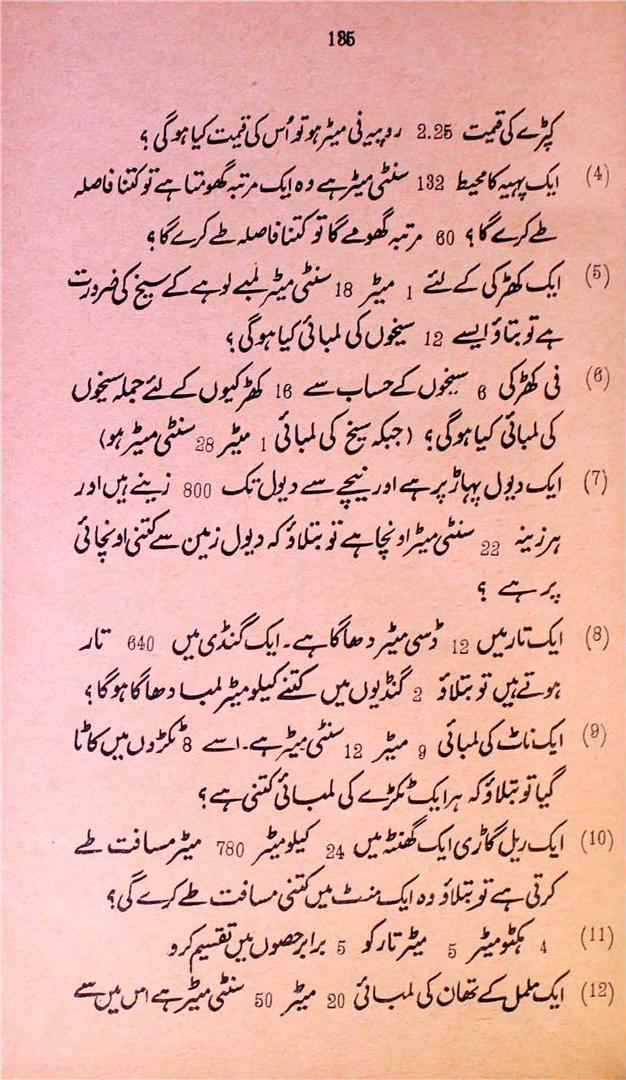 185
کپڑے کی قیمت 2.25 روپیہ فی میٹر ہو تو اُس کی قیمت کیا ہوگی ؟
(4) ایک پہیہ کا محیط 132 سنٹی میٹر ہے وہ ایک مرتبہ گھومتا ہے تو کتنا فاصلہ
طے کرے گا؟ 60 مرتبہ گھومے گا تو کتنا فاصلہ طے کرے گا؟
(5) ایک کھڑکی کے لئے 1 میٹر 18 سنٹی میٹر لمبے لوہے کے سیخ کی ضرورت
ہے تو بتاؤ ایسے 12 سیخوں کی لمبائی کیا ہوگی؟
(6) فی کھڑکی 6 سیخوں کے حساب سے 16 کھڑکیوں کے لئے جملہ سیخوں
کی لمبائی کیا ہوگی؟ (جبکہ سیخ کی لمبائی 1 میٹر 28 سنٹی میٹر ہو)
(7) ایک دیول پہاڑ پر ہے اور نیچے سے دیول تک 800 زینے ہیں اور
ہر زینہ 22 سنٹی میٹر اونچا ہے تو بتلاؤ کہ دیول زمین سے کتنی اونچائی
پر ہے ؟
(8) ایک تار میں 12 ڈسی میٹر دھاگا ہے۔ ایک گنڈی میں 640 تار
ہوتے ہیں تو بتلاؤ 2 گنڈیوں میں کتنے کیلو میٹر لمبا دھاگا ہوگا؟
(9) ایک ناٹ کی لمبائی 9 میٹر 12 سنٹی میٹر ہے۔ اسے 8 ٹکڑوں میں کاٹا
گیا تو بتلاؤ کہ ہر ایک ٹکڑے کی لمبائی کتنی ہے؟
(10) ایک ریل گاڑی ایک گھنٹہ میں 24 کیلو میٹر 780 میٹر مسافت طے
کرتی ہے تو بتلاؤ وہ ایک منٹ میں کتنی مسافت طے کرے گی؟
(11) 4 ہکٹو میٹر 5 میٹر تار کو 5 برابر حصوں میں تقسیم کرو
(12) ایک ململ کے تھان کی لمبائی 20 میٹر 50 سنٹی میٹر ہے اس میں سے